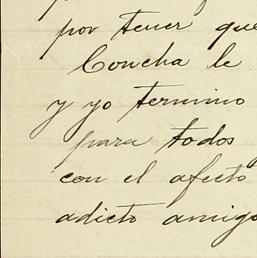 por tener que
Concha le
y yo termino
para todos
con el afecto
adicto amigo